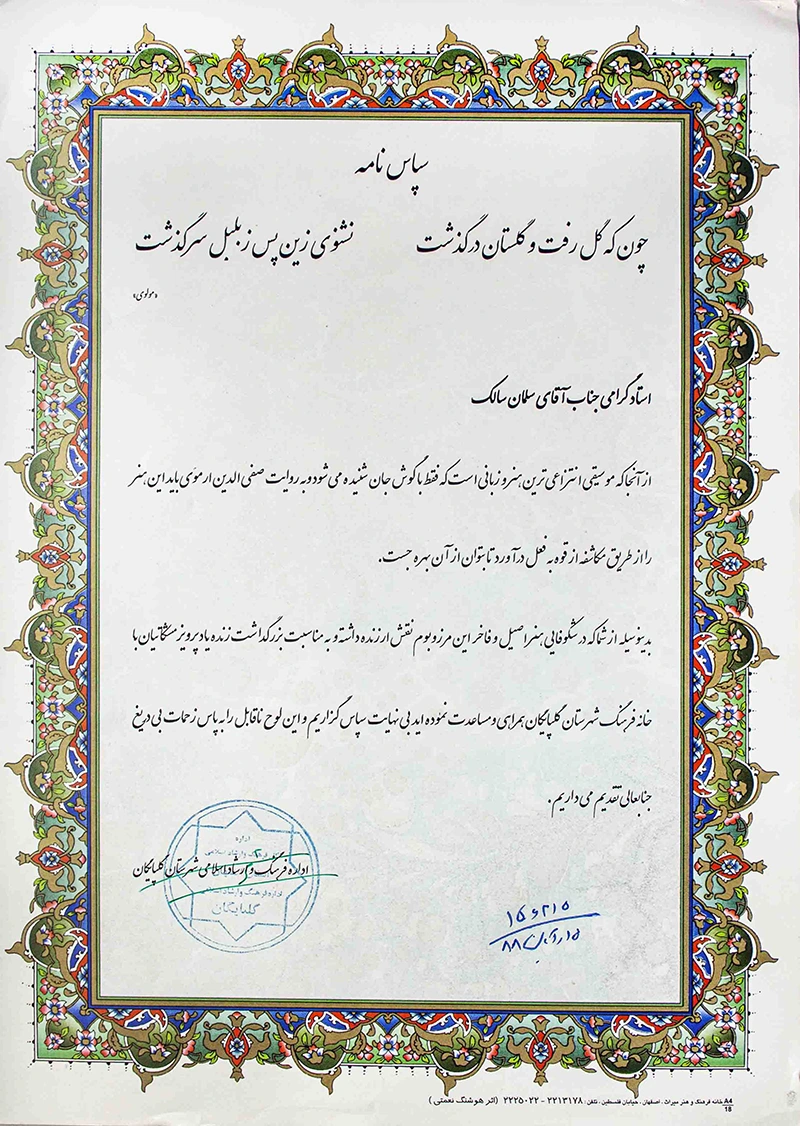 سپاس نامه
چون که گل رفت و گلستان درگذشت نشنوی زین پس ز بلبل سرگذشت
«مولوی»
استاد گرامی جناب آقای سلمان سالک
از آنجا که موسیقی انتزاعی ترین هنر و زبانی است که فقط با گوش جان شنیده می شود و به روایت صفی الدین ارموی باید این هنر
را از طریق مکاشفه از قوه به فعل درآورد تا بتوان از آن بهره جست.
بدینوسیله از شما که در شکوفایی هنر اصیل و فاخر این مرز و بوم نقش ارزنده داشته و به مناسبت بزرگداشت زنده یاد پرویز مشکاتیان با
خانه فرهنگ شهرستان گلپایگان همراهی و مساعدت نموده اید بی نهایت سپاس گزاریم و این لوح ناقابل را به پاس زحمات بی دریغ
جنابعالی تقدیم می داریم.
اداره
فرهنگ و ارشاد اسلامی
اداره فرهنگ و ارشاد اسلامی شهرستان گلپایگان
اداره فرهنگ وارشاد اسلامی
گلپایگان
۸۸
A4 خانه فرهنگ و هنر میراث . اصفهان . خیابان فلسطین . تلفن : ۲۲۱۳۱۷۸ - ۲۲۲۵۰۲۲ (اثر هوشنگ نعمتی)
18